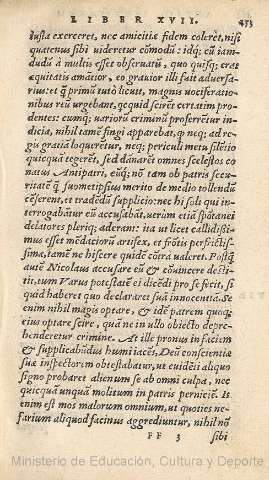 LIBER XVII. 453
iusta exerceret, nec amicitiæ fidem coleret, nisi
quatenus sibi uideretur cōmodū: idq; cū iam-
dudū à multis esset obseruatū, quo quisq; erat
æquitatis amātior, eo grauior illi fuit aduersa-
rius: et q̃ primū tutò licuit, magnis uociferatio-
nibus reū urgebant, quicquid scirēt certatim pro-
dentes: cumq; uariorū criminū proferrētur in-
dicia, nihil tamē fingi apparebat, q̃ neq; ad re-
gis gratiā loquerētur, neq; periculi metu silētio
quicquā tegerēt, sed dānarēt omnes scelestos co
natus Antipatri, eūq; nō tam ob patris secu-
ritatē q̃ suometipsius merito de medio tollendū
cēserent, et tradēdū supplicio: nec hi soli qui in-
terrogabātur eū accusabāt, uerùm etiā spōtanei
delatores pleriq; aderant: ita ut licet callidissi-
mus esset mēdaciorū artifex, et frōtis perfrictis-
simæ, tamē ne hiscere quidē cōtrà ualeret. Postq̃
autē Nicolaus accusare eū & cōuincere desti-
tit, tum Varus potestatē ei dicēdi pro se fecit, si
quid haberet quo declararet suā innocentiā. Se
enim nihil magis optare, & idē patrem quoq;
eius optare scire, quā ne in ullo obiecto depre-
henderetur crimine. At ille pronus in faciem
& supplicabūdus humi iacēs, Deū conscientiæ
suæ inspectorem obtestabatur, ut euidēti aliquo
signo probaret alienum se ab omni culpa, nec
quicquā unquā molitum in patris perniciē. Is
enim est mos malorum omnium, ut quoties ne-
farium aliquod facinus aggrediuntur, nihil nō
FF 3 sibi
Ministerio de Educación, Cultura y Deporte